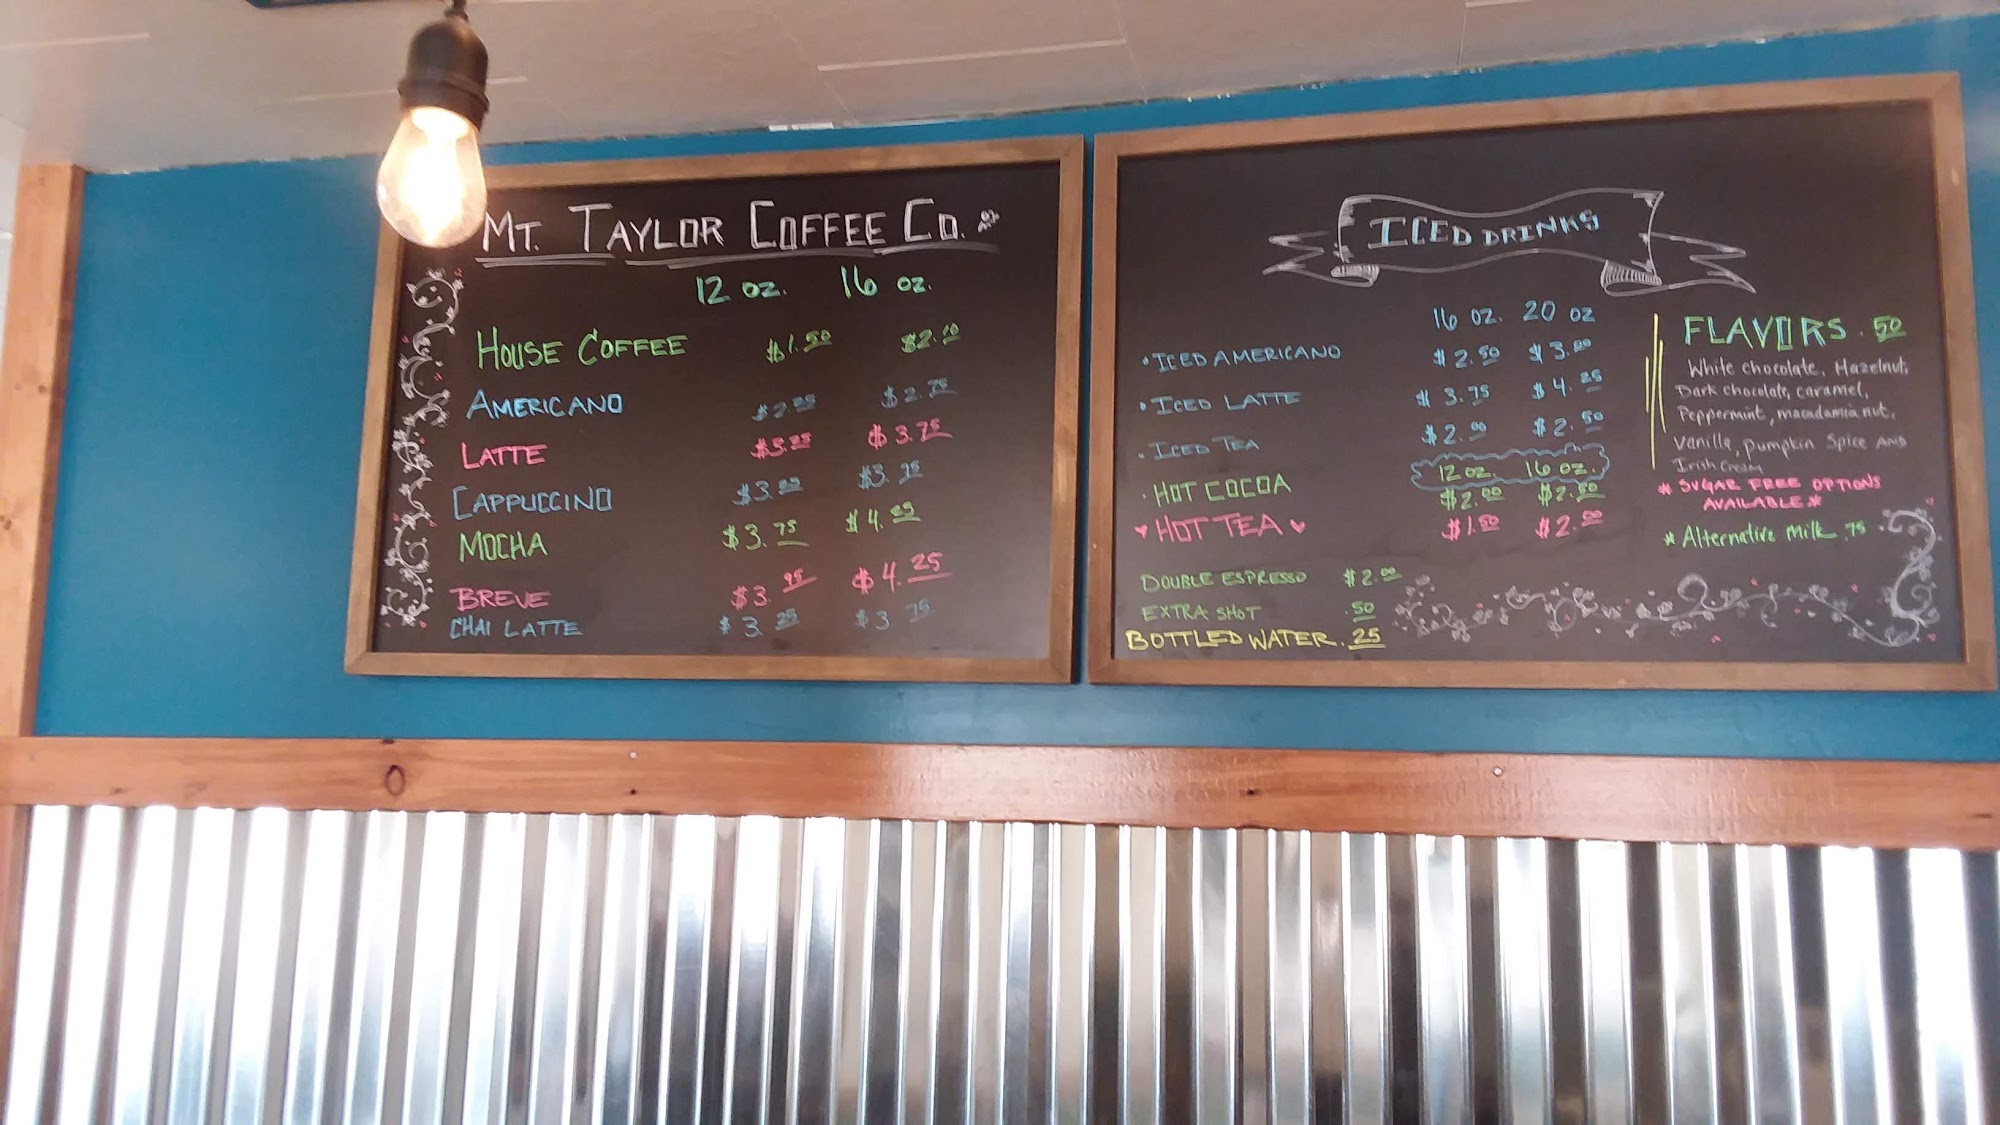 MT. TAYLOR COFFEE CO.
12 OZ. 16 OZ.
HOUSE COFFEE $1.50 $2.10
AMERICANO $2.25 $2.75
LATTE $3.25 $3.75
CAPPUCCINO $3.25 $3.75
MOCHA $3.75 $4.25
BREVE $3.75 $4.25
CHAI LATTE $3.25 $3.75
ICED DRINKS
16 OZ. 20 OZ
• ICED AMERICANO $2.50 $3.00
• ICED LATTE $3.75 $4.25
• ICED TEA $2.00 $2.50
12 OZ. 16 OZ.
• HOT COCOA $2.00 $2.50
♥ HOT TEA ♥ $1.50 $2.00
DOUBLE ESPRESSO $2.00
EXTRA SHOT .50
BOTTLED WATER .25
FLAVORS .50
White chocolate, Hazelnut,
Dark chocolate, caramel,
Peppermint, macadamia nut,
Vanilla, Pumpkin Spice AND
Irish Cream
* SUGAR FREE OPTIONS
AVAILABLE *
* Alternative Milk .75